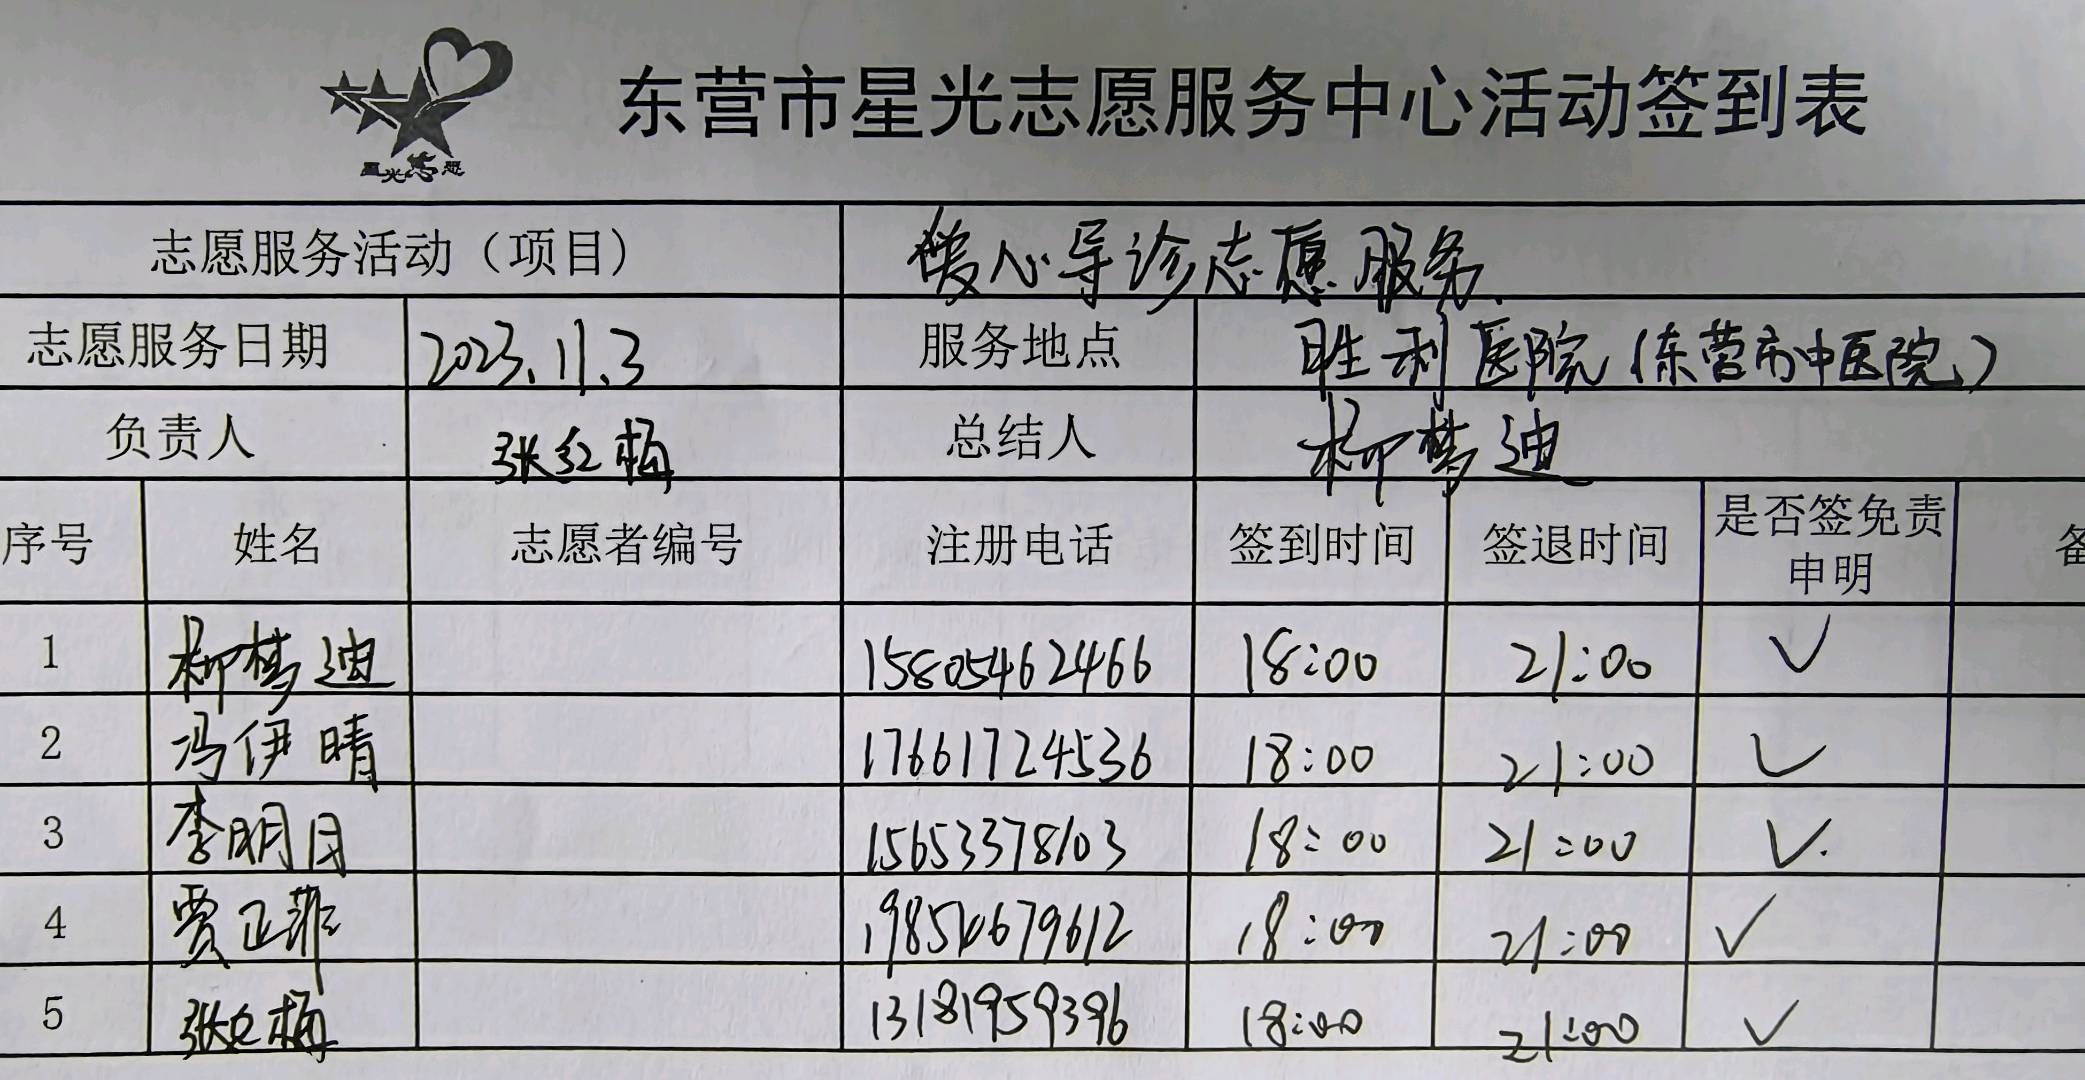 东营市星光志愿服务中心活动签到表
星光志愿
志愿服务活动（项目） 暖心导诊志愿服务
志愿服务日期 2023.11.3 服务地点 胜利医院（东营市中医院）
负责人 张红梅 总结人 柳梦迪
序号 姓名 志愿者编号 注册电话 签到时间 签退时间 是否签免责申明 备
1 柳梦迪 15805462466 18:00 21:00 ✓
2 冯伊晴 17661724536 18:00 21:00 ✓
3 李明月 15653378103 18:00 21:00 ✓
4 贾正菲 18:00 21:00 ✓
5 张红梅 13181959396 18:00 21:00 ✓